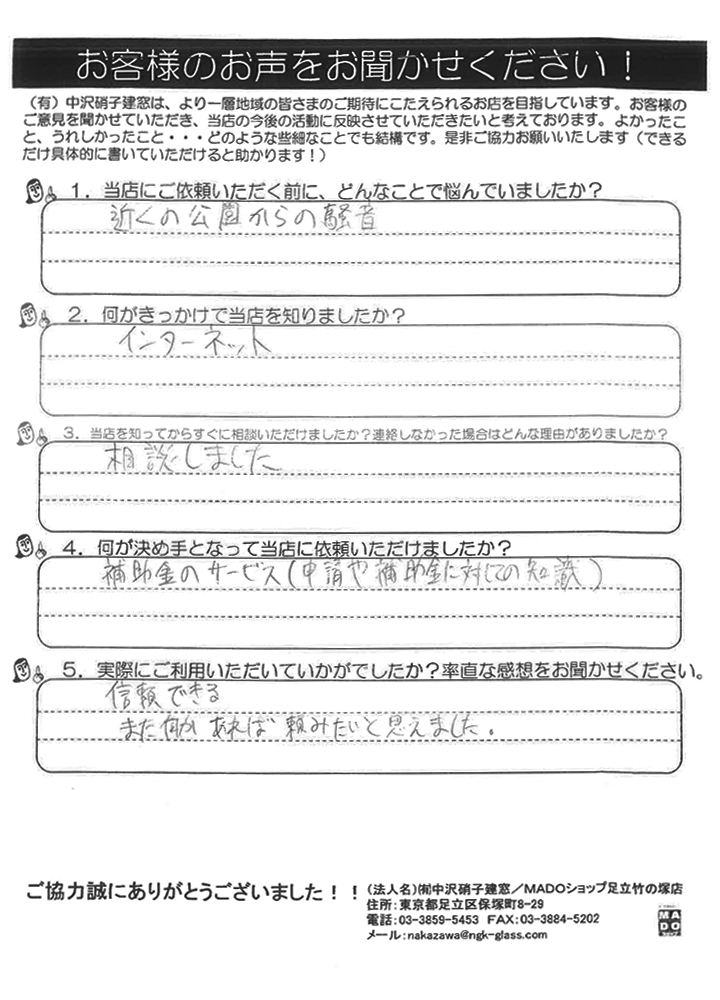 お客様のお声をお聞かせください！
（有）中沢硝子建窓は、より一層地域の皆さまのご期待にこたえられるお店を目指しています。お客様の
ご意見を聞かせていただき、当店の今後の活動に反映させていただきたいと考えております。よかったこ
と、うれしかったこと・・・どのような些細なことでも結構です。是非ご協力お願いいたします（できる
だけ具体的に書いていただけると助かります！）
１．当店にご依頼いただく前に、どんなことで悩んでいましたか？
近くの公園からの騒音
２．何がきっかけで当店を知りましたか？
インターネット
３．当店を知ってからすぐに相談いただけましたか？連絡しなかった場合はどんな理由がありましたか？
相談しました
４．何が決め手となって当店に依頼いただけましたか？
補助金のサービス（申請や補助金に対しての知識）
５．実際にご利用いただいていかがでしたか？率直な感想をお聞かせください。
信頼できる
また何かあれば頼みたいと思えました。
ご協力誠にありがとうございました！！
（法人名）㈲中沢硝子建窓／MADOショップ足立竹の塚店
住所：東京都足立区保塚町8-29
電話：03-3859-5453 FAX：03-3884-5202
メール：nakazawa@ngk-glass.com
MADO